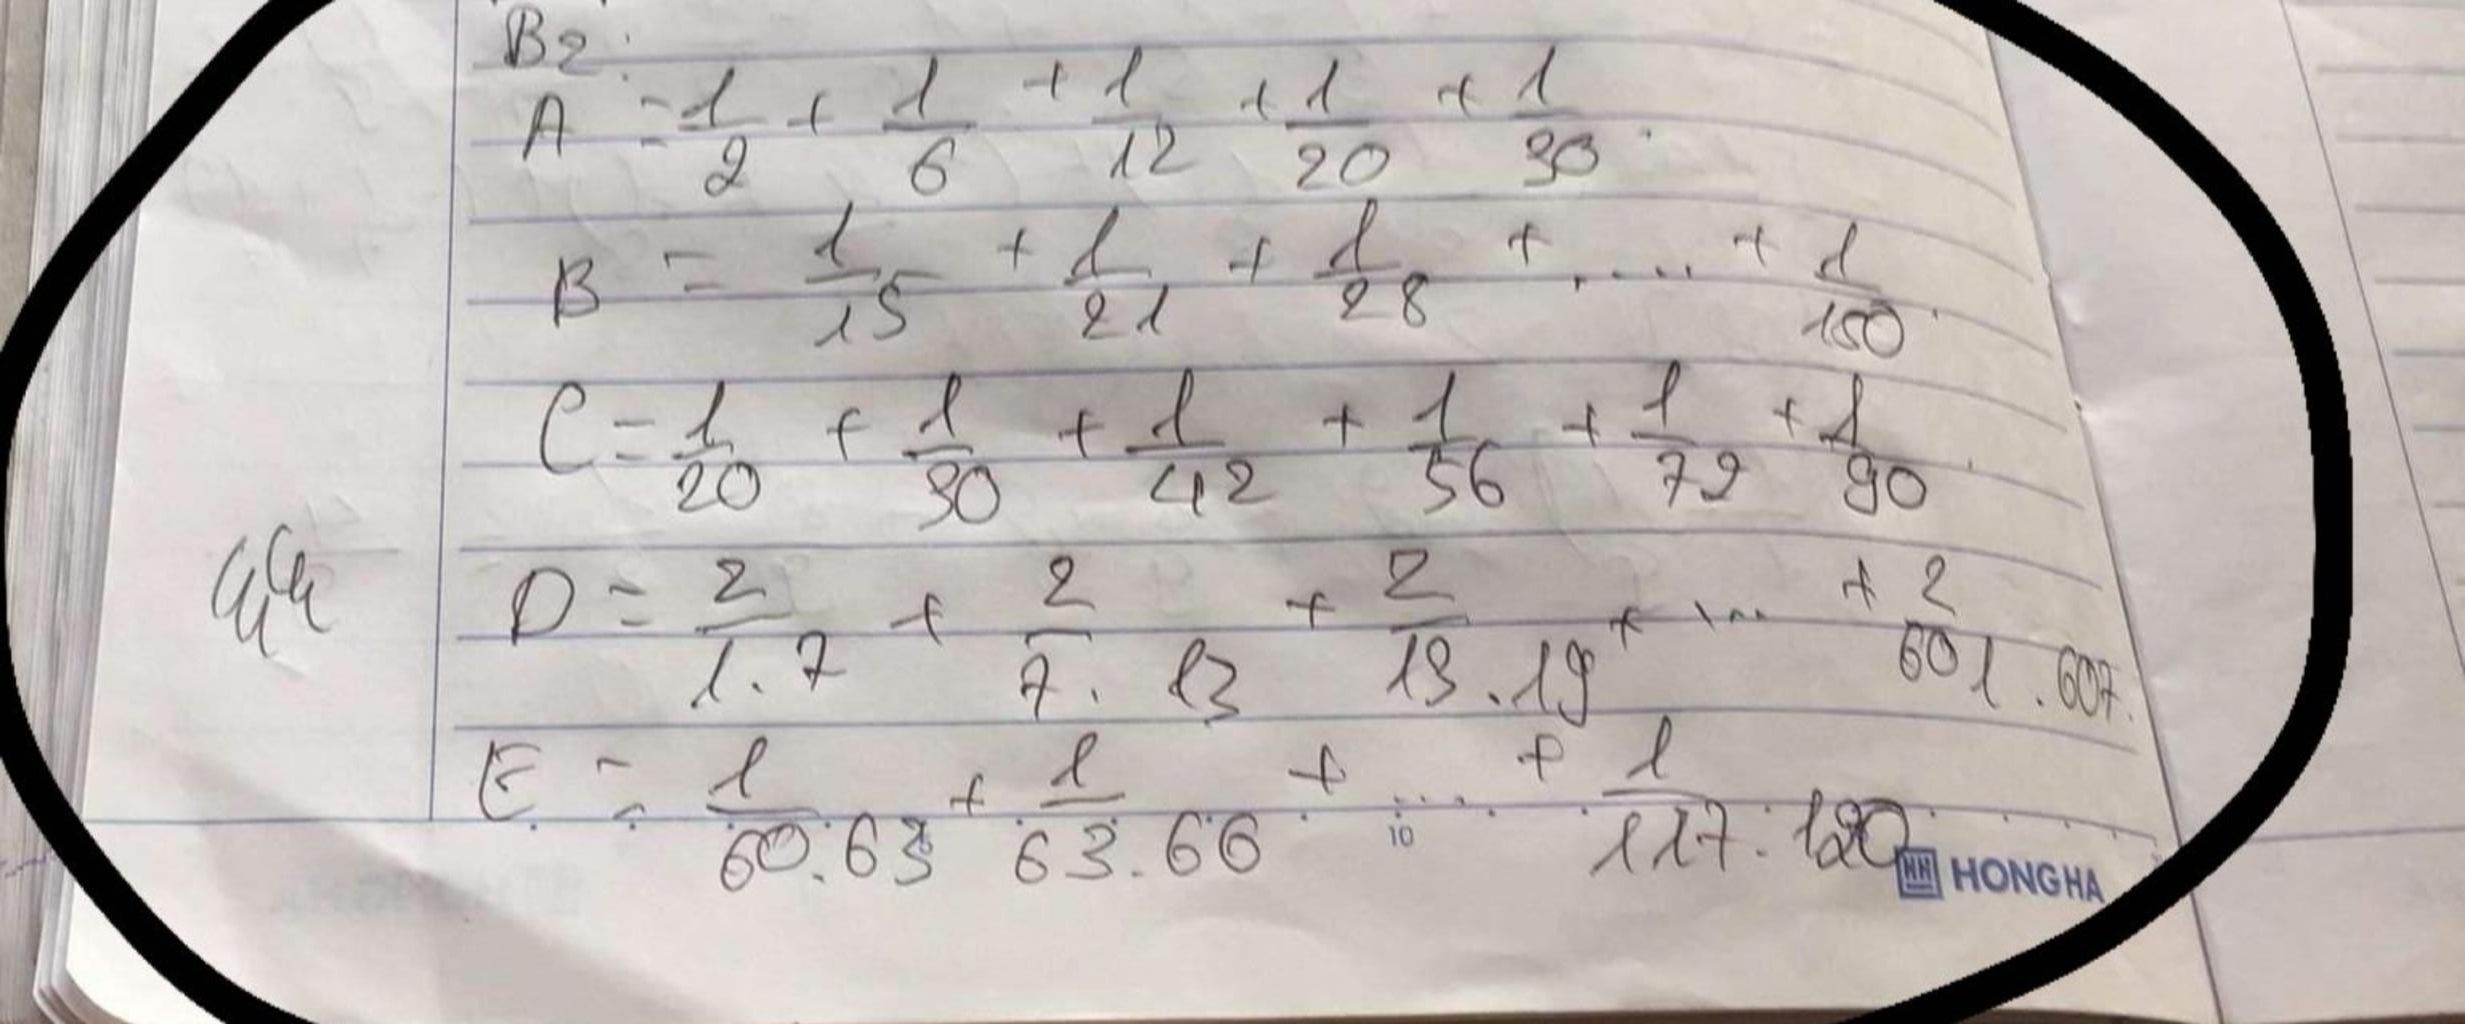 B2:
A = 1/2 + 1/6 + 1/12 + 1/20 + 1/30.
B = 1/15 + 1/21 + 1/28 + .... + 1/150.
C = 1/20 + 1/30 + 1/42 + 1/56 + 1/72 + 1/90.
D = 2/1.7 + 2/7.13 + 2/13.19 + ... + 2/601.607.
E = 1/60.63 + 1/63.66 + .... + 1/117.120
10
HH HONG HA